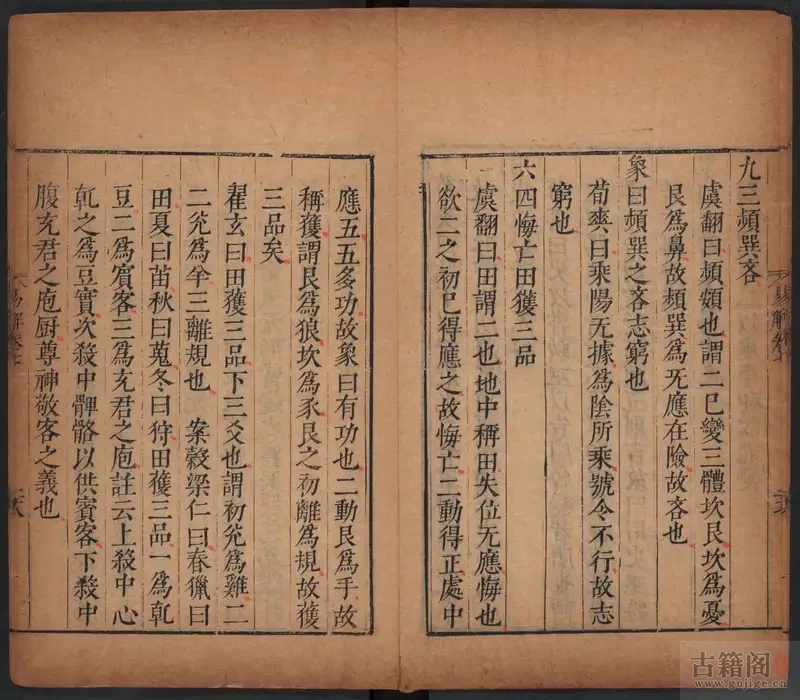 九三頻巽吝
虞翻曰頻頞也謂二已變三體坎艮坎爲憂
艮爲鼻故頻巽爲无應在險故吝也
象曰頻巽之吝志窮也
荀爽曰乘陽无據爲陰所乘號令不行故志
窮也
六四悔亡田獲三品
虞翻曰田謂二也地中稱田失位无應悔也
欲二之初已得應之故悔亡二動得正處中
應五五多功故象曰有功也二動艮爲手故
稱獲謂艮爲狼坎爲豕艮之初離爲規故獲
三品矣
翟玄曰田獲三品下三爻也謂初兊爲雞二
二兊爲羊三離規也 案穀梁仁曰春獵曰
田夏曰苗秋曰蒐冬曰狩田獲三品一爲乹
豆二爲賓客三爲充君之庖註云上殺中心
乹之爲豆實次殺中髀骼以供賓客下殺中
腹充君之庖厨尊神敬客之義也
易解卷七
古籍阁
www.gujige.cn